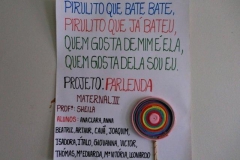 PIRULITO QUE BATE BATE,
PIRULITO QUE JÁ BATEU,
QUEM GOSTA DE MIM É ELA,
QUEM GOSTA DELA SOU EU.
PROJETO: PARLENDA
MATERNAL II
PROFª: SHEILA
ALUNOS: ANA CLARA, ANNA
BEATRIZ, ARTHUR, CAUÃ, JOAQUIM,
ISADORA, ÍTALO, GIOVANNA, VICTOR,
THOMAS, Mª EDUARDA, Mª VITÓRIA, LEONARDO